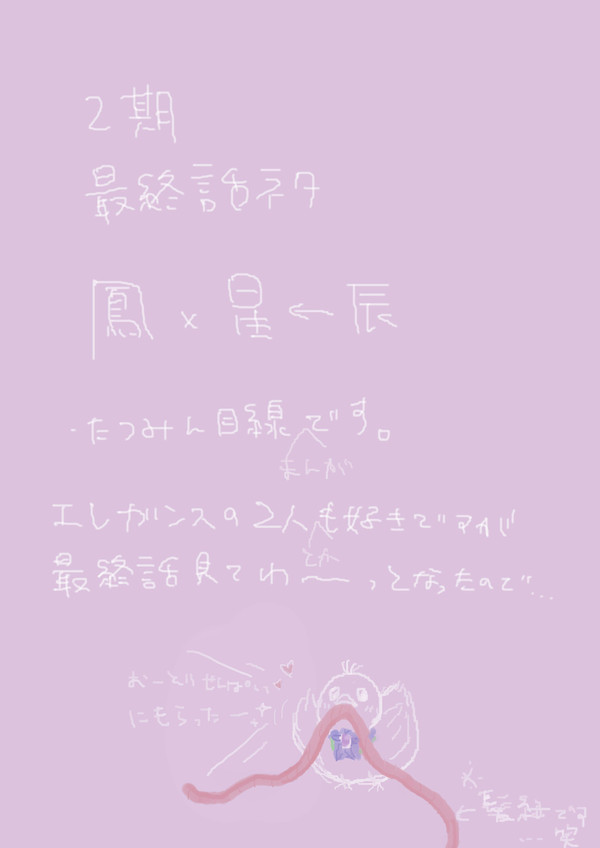 2期
最終話ネタ
鳳×星←辰
・たつみん目線です。
まんが
エレガンスの2人も好きですが
とか
最終話見てわ〜っとなったので…
おーとりせんぱいに
にもらったー
←髪紐です
…笑